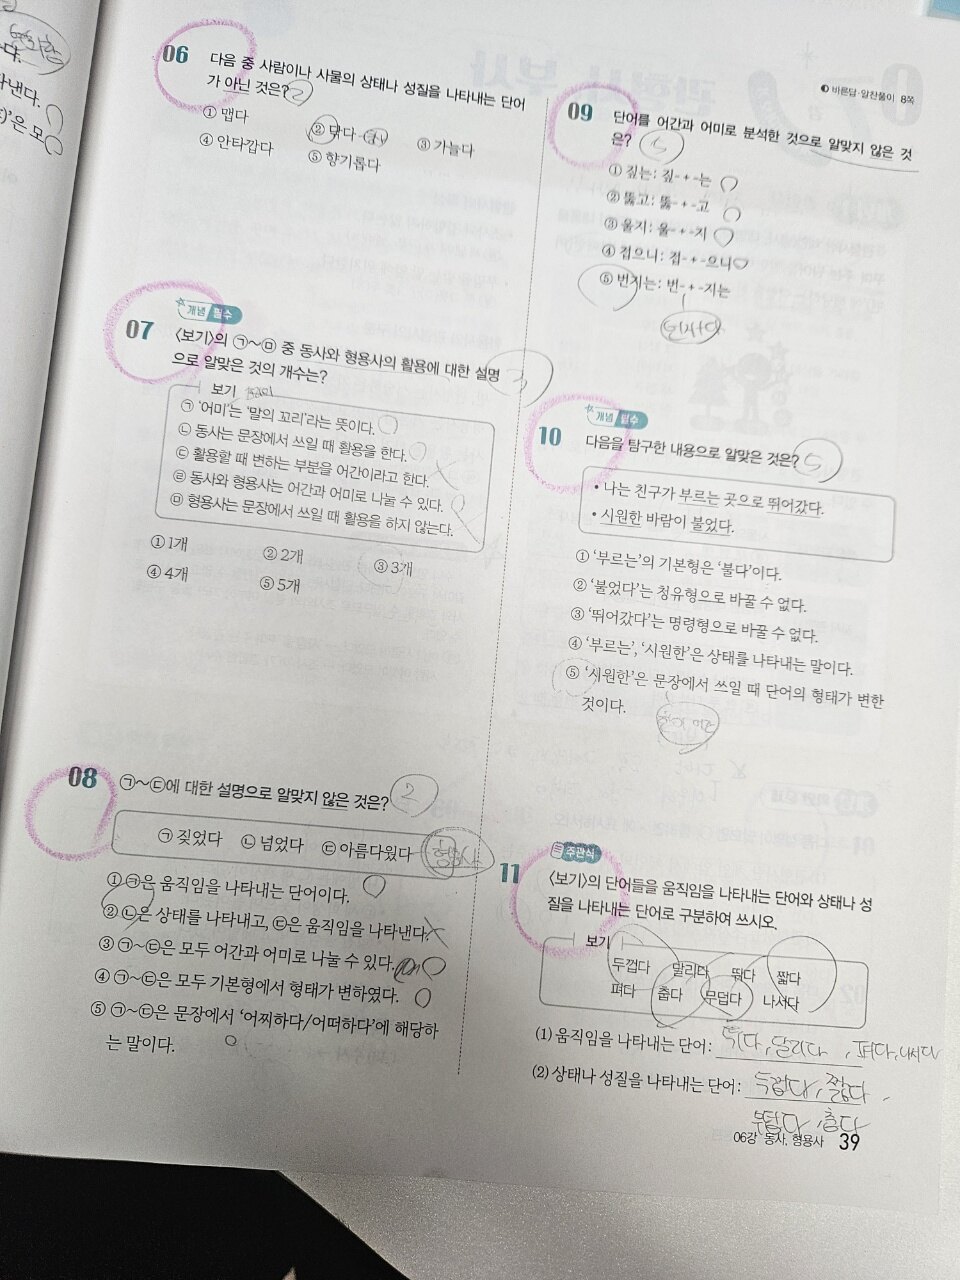 06 다음 중 사람이나 사물의 상태나 성질을 나타내는 단어
가 아닌 것은? 2
① 맵다 ② 닦다 ③ 가늘다
④ 안타깝다 ⑤ 향기롭다
개념 필수
07 <보기>의 ㉠~㉤ 중 동사와 형용사의 활용에 대한 설명
으로 알맞은 것의 개수는? 3
보기
㉠ '어미'는 '말의 꼬리'라는 뜻이다.
㉡ 동사는 문장에서 쓰일 때 활용을 한다.
㉢ 활용할 때 변하는 부분을 어간이라고 한다.
㉣ 동사와 형용사는 어간과 어미로 나눌 수 있다.
㉤ 형용사는 문장에서 쓰일 때 활용을 하지 않는다.
① 1개 ② 2개 ③ 3개
④ 4개 ⑤ 5개
08 ㉠~㉢에 대한 설명으로 알맞지 않은 것은? 2
㉠ 짖었다 ㉡ 넘었다 ㉢ 아름다웠다 형용사
① ㉠은 움직임을 나타내는 단어이다.
② ㉡은 상태를 나타내고, ㉢은 움직임을 나타낸다.
③ ㉠~㉢은 모두 어간과 어미로 나눌 수 있다.
④ ㉠~㉢은 모두 기본형에서 형태가 변하였다.
⑤ ㉠~㉢은 문장에서 '어찌하다/어떠하다'에 해당하
는 말이다.
바른답·알찬풀이 8쪽
09 단어를 어간과 어미로 분석한 것으로 알맞지 않은 것
은? 5
① 짚는: 짚- + -는
② 뚫고: 뚫- + -고
③ 울지: 울- + -지
④ 접으니: 접- + -으니
⑤ 번지는: 번- + -지는
번지다
개념 필수
10 다음을 탐구한 내용으로 알맞은 것은? 5
• 나는 친구가 부르는 곳으로 뛰어갔다.
• 시원한 바람이 불었다.
① '부르는'의 기본형은 '불다'이다.
② '불었다'는 청유형으로 바꿀 수 없다.
③ '뛰어갔다'는 명령형으로 바꿀 수 없다.
④ '부르는', '시원한'은 상태를 나타내는 말이다.
⑤ '시원한'은 문장에서 쓰일 때 단어의 형태가 변한
것이다.
주관식
11 <보기>의 단어들을 움직임을 나타내는 단어와 상태나 성
질을 나타내는 단어로 구분하여 쓰시오.
보기
두껍다 달리다 뛰다 짧다
펴다 춥다 무덥다 나서다
(1) 움직임을 나타내는 단어: 뛰다, 달리다, 펴다, 나서다
(2) 상태나 성질을 나타내는 단어: 두껍다, 짧다,
무덥다, 춥다
06강 동사, 형용사 39